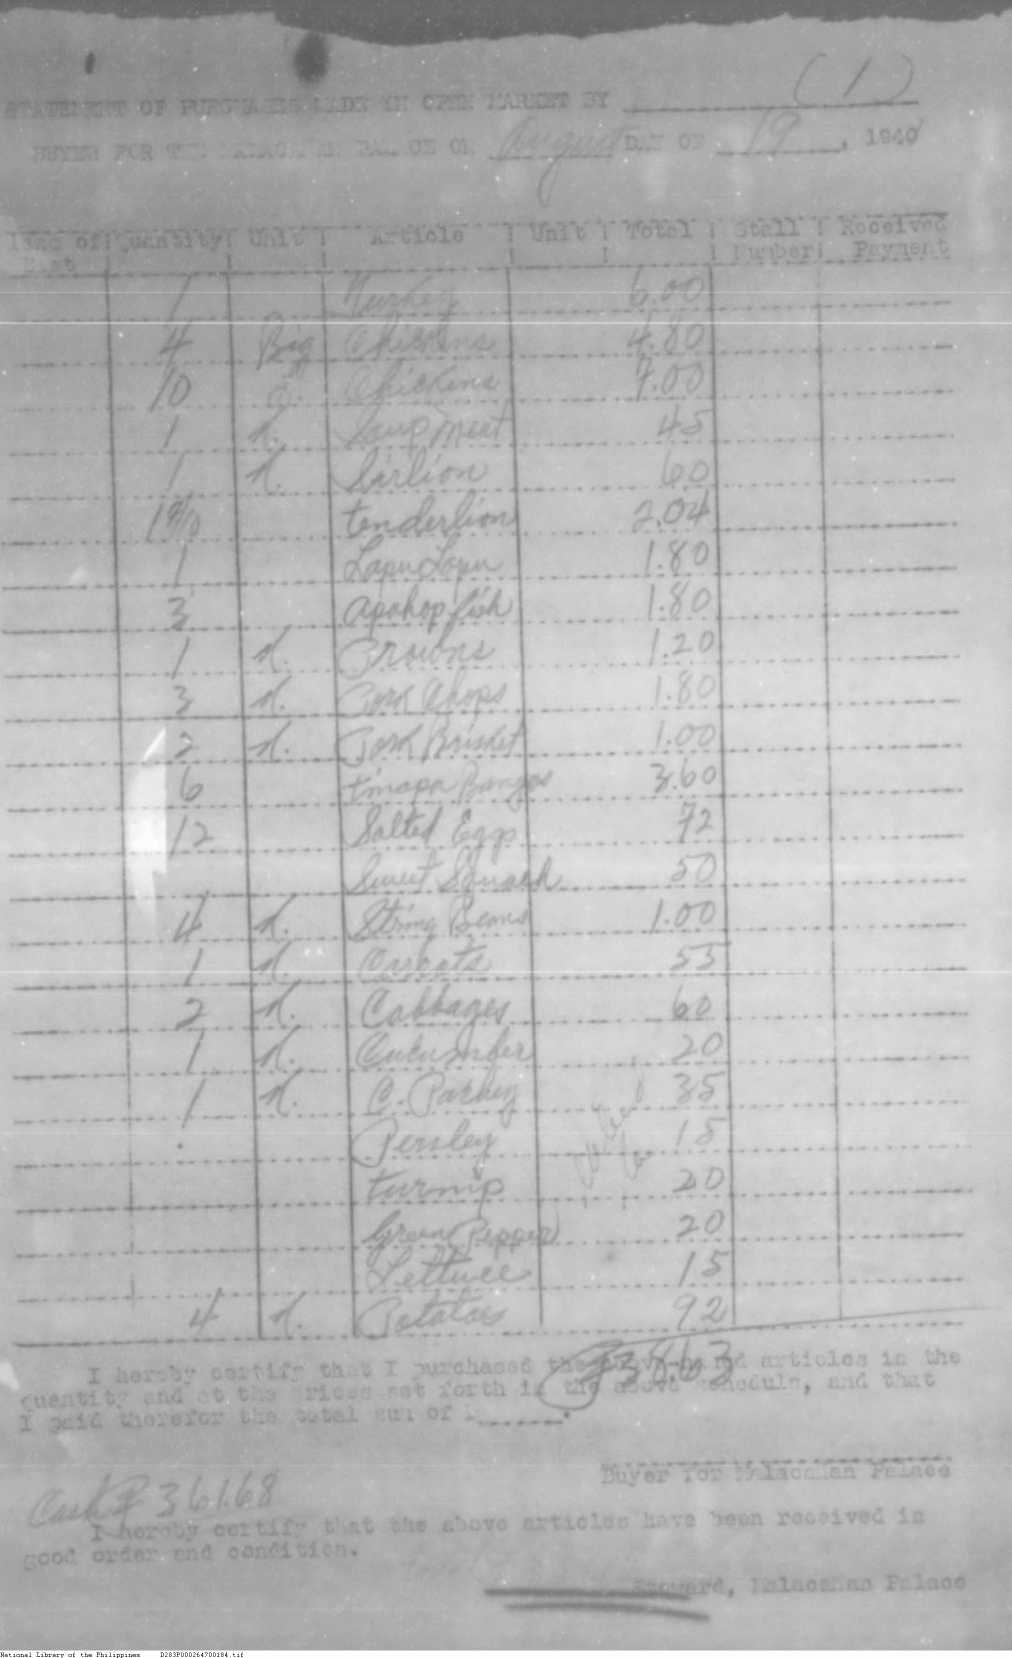 (1)
STATEMENT OF PURCHASES MADE IN OPEN MARKET BY
BUYER FOR THE MALACAÑAN PALACE ON August DAY OF 19, 1940
Quantity Unit Article Unit Total Stall Received
Number Payment
1 Turkey 6.00
4 Big Chickens 4.80
10 Chickens 7.00
1 K. Soup Meat 45
1 K. Sirlion 60
tenderlion 2.04
1 Lapu Lapu 1.80
3 Apahop fish 1.80
1 K. Prowns 1.20
3 K. Pork Chops 1.80
2 K. Pork Brisket 1.00
6 tinapa Bangos 3.60
12 Salted Eggs 72
Sweet Squash 50
4 K. String Beans 1.00
1 K. Carrots 55
2 K. Cabbages 60
1 K. Cucumber 20
1 K. C. 35
Persley 15
turnip 20
Green Pepper 20
Lettuce 15
4 K. Potatoes 92
I hereby certify that I purchased the above-named articles in the
quantity and at the prices set forth in the above schedule, and that
I paid therefor the total sum of
Buyer for Malacañan Palace
Cash ₱ 361.68
I hereby certify that the above articles have been received in
good order and condition.
Steward, Malacañan Palace
National Library of the Philippines D283P000264700184.tif